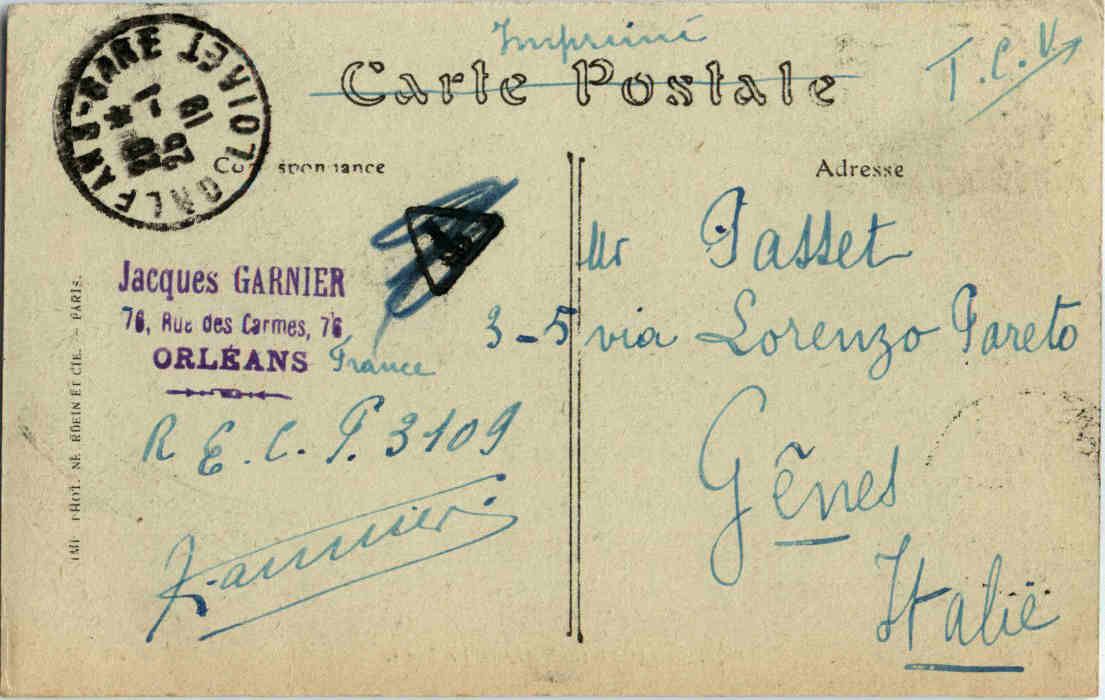 Imprimé
Carte Postale
T.C.V
ORLEANS-GARE LOIRET
19
1-
25
Correspondance
Adresse
T
Jacques GARNIER
76, Rue des Carmes, 76
ORLÉANS France
R.E.C.P. 3109
JGarnier
Mr Passet
3-5 via Lorenzo Pareto
Gênes
Italie
IMP. PHOT. NEURDEIN ET CIE. - PARIS.